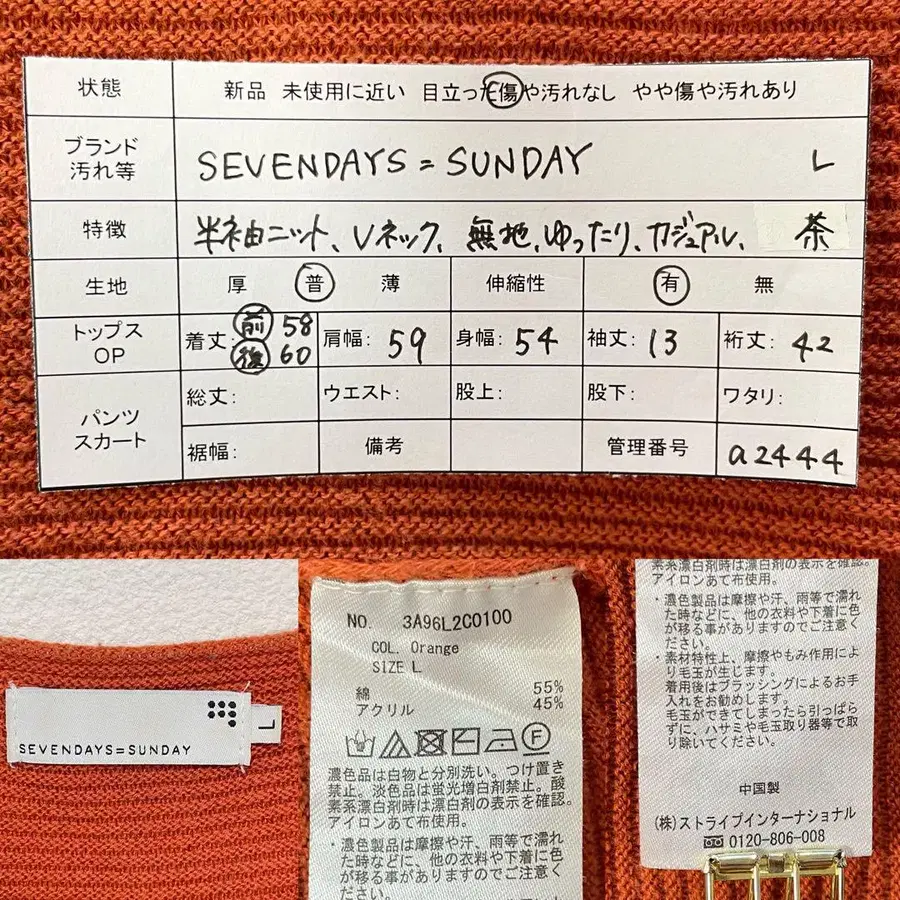 状態 新品 未使用に近い 目立った傷や汚れなし やや傷や汚れあり
ブランド
汚れ等 SEVENDAYS=SUNDAY L
特徴 半袖ニット、Vネック、無地、ゆったり、カジュアル、 茶
生地 厚 普 薄 伸縮性 有 無
トップス
OP
着丈: 前 58
後 60
肩幅: 59 身幅: 54 袖丈: 13 裄丈: 42
パンツ
スカート
総丈: ウエスト: 股上: 股下: ワタリ:
裾幅: 備考 管理番号 a2444
SEVENDAYS=SUNDAY
L
NO. 3A96L2C0100
COL. Orange
SIZE L
綿 55%
アクリル 45%
濃色品は白物と分別洗い。つけ置き
禁止。淡色品は蛍光増白剤禁止。酸
素系漂白剤時は漂白剤の表示を確認。
アイロンあて布使用。
・濃色製品は摩擦や汗、雨等で濡れ
た時などに、他の衣料や下着に色
が移る事がありますのでご注意く
ださい。
素系漂白剤時は漂白剤の表示を確認。
アイロンあて布使用。
・濃色製品は摩擦や汗、雨等で濡れ
た時などに、他の衣料や下着に色
が移る事がありますのでご注意く
ださい。
・素材特性上、摩擦やもみ作用によ
り毛玉が生じます。
着用後はブラッシングによるお手
入れをお勧めします。
毛玉ができてしまったら引っぱら
ずに、ハサミや毛玉取り器等で取
り除いてください。
中国製
(株)ストライプインターナショナル
0120-806-008